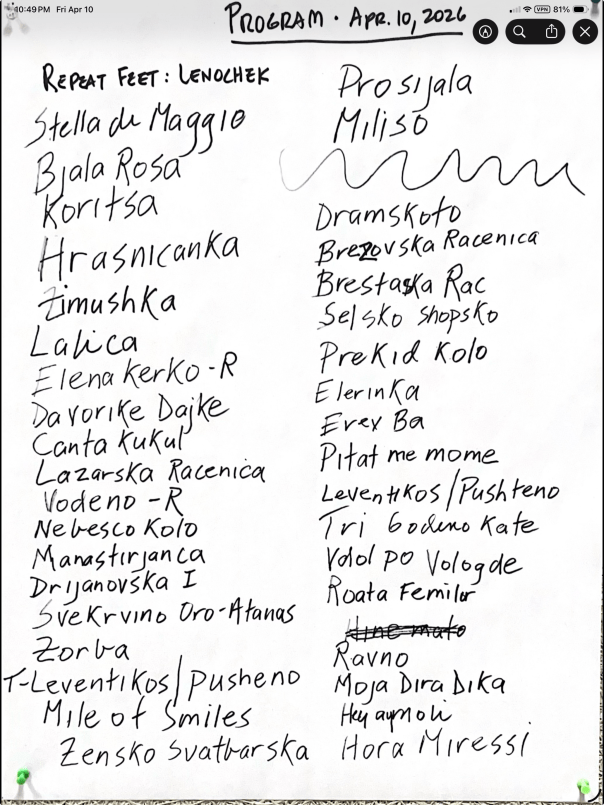 10:49 PM Fri Apr 10
VPN 81%
PROGRAM · APR. 10, 2026
REPEAT FEET: LENOCHEK
Stella di Maggio
Bjala Rosa
Koritsa
Hrasnicanka
Zimushka
Lalica
Elena Kerko -R
Davorike Dajke
Canta Kukul
Lazarska Racenica
Vodeno -R
Nebesco Kolo
Manastirjanca
Drijanovska I
Svekrvino Oro-Atanas
Zorba
T-Leventikos/Pusheno
Mile of Smiles
Zensko Svatbarska
Prosijala
Miliso
Dramskoto
Brezovska Racenica
Rac
Selsko Shopsko
Prekid Kolo
Elerinka
Erex Ba
Pitat me mome
Leventikos/Pushteno
Tri Godeno Kate
Vdol po Vologde
Roata Femilor
Ravno
Moja Dira Dika
Hora Miressi